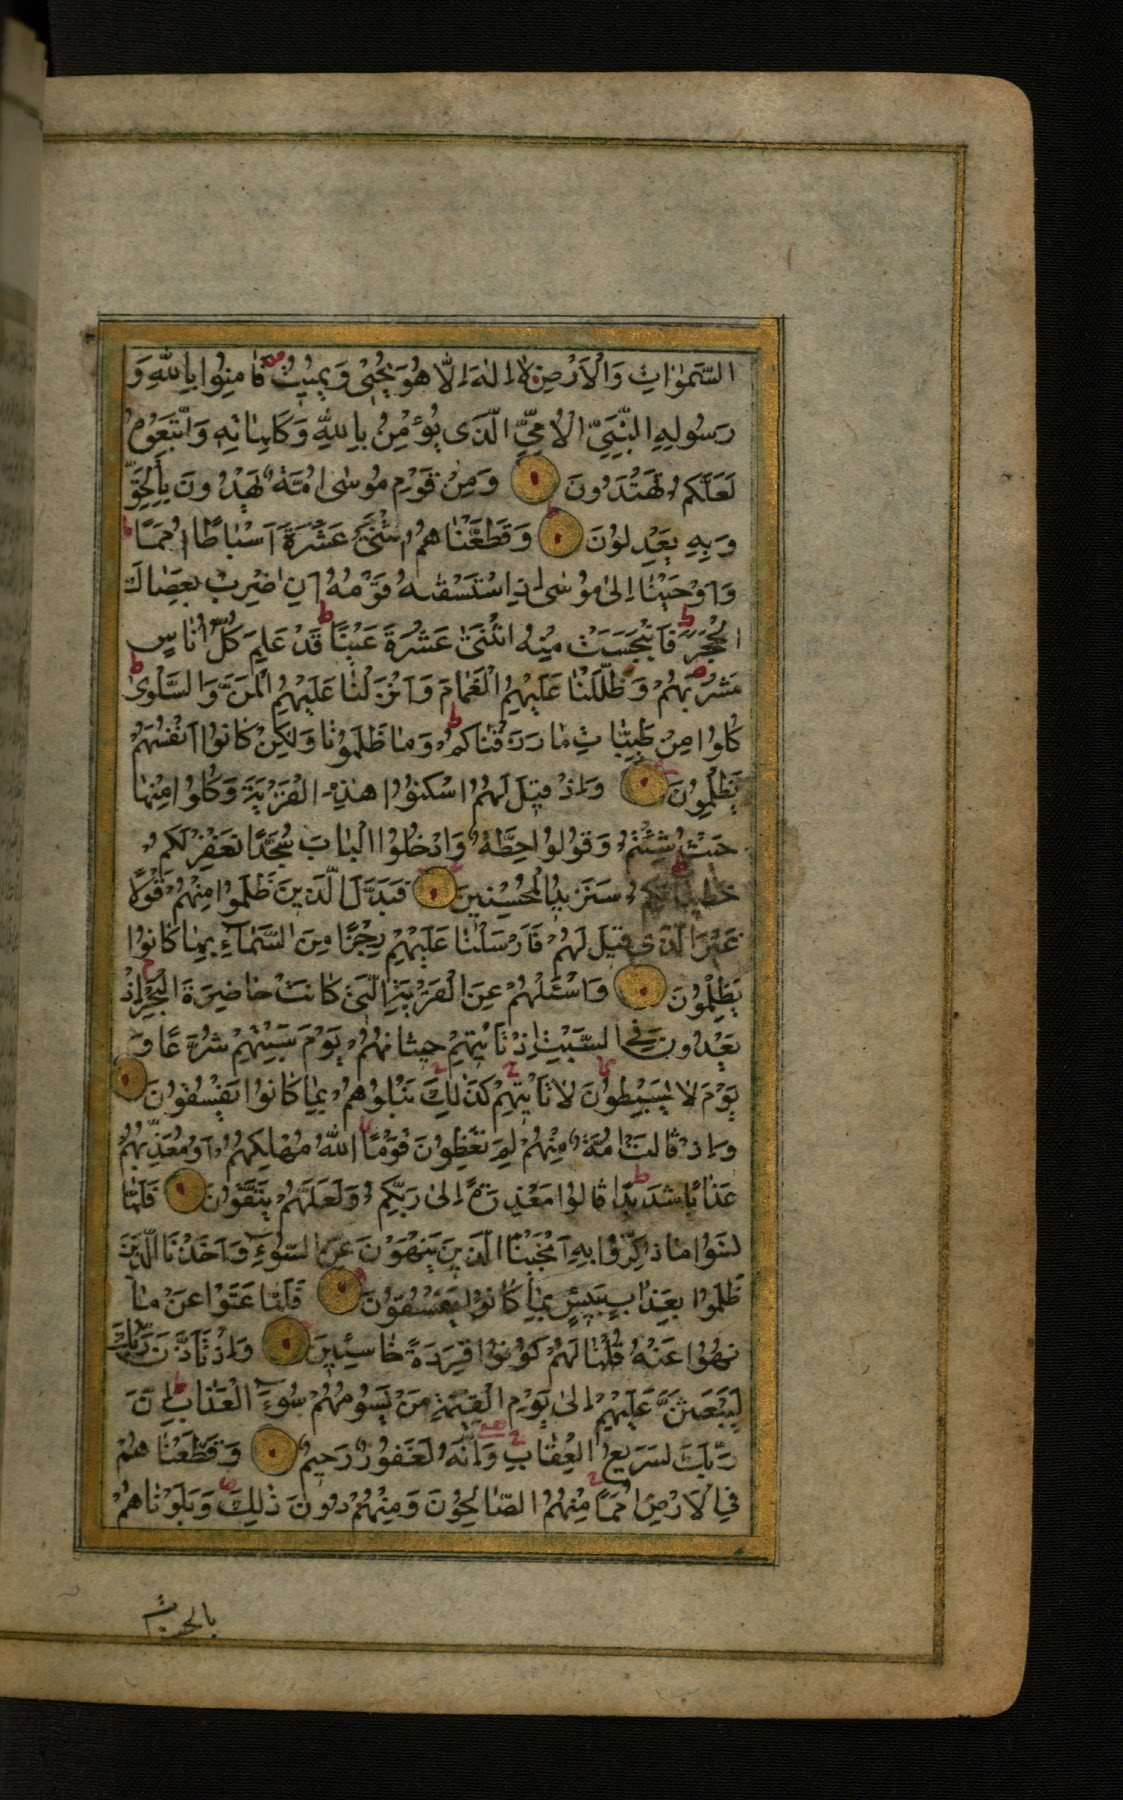 السَّمٰوٰاتِ وَالْاَرْضِ لٰا اِلٰهَ اِلّٰا هُوَ يُحْيٖى وَيُمٖيتُ فَاٰمِنُوا بِاللّٰهِ وَ
رَسُولِهِ النَّبِىِّ الْاُمِّىِّ الَّذٖى يُؤْمِنُ بِاللّٰهِ وَكَلِمٰاتِهٖ وَاتَّبِعُوهُ
لَعَلَّكُمْ تَهْتَدُونَ وَمِنْ قَوْمِ مُوسٰى اُمَّةٌ يَهْدُونَ بِالْحَقِّ
وَبِهٖ يَعْدِلُونَ وَقَطَّعْنٰاهُمُ اثْنَتَىْ عَشْرَةَ اَسْبٰاطًا اُمَمًا
وَاَوْحَيْنٰا اِلٰى مُوسٰى اِذِ اسْتَسْقٰىهُ قَوْمُهُ اَنِ اضْرِبْ بِعَصٰاكَ
الْحَجَرَ فَانْبَجَسَتْ مِنْهُ اثْنَتٰى عَشْرَةَ عَيْنًا قَدْ عَلِمَ كُلُّ اُنٰاسٍ
مَشْرَبَهُمْ وَظَلَّلْنٰا عَلَيْهِمُ الْغَمٰامَ وَاَنْزَلْنٰا عَلَيْهِمُ الْمَنَّ وَالسَّلْوٰى
كُلُوا مِنْ طَيِّبٰاتِ مٰا رَزَقْنٰاكُمْ وَمٰا ظَلَمُونٰا وَلٰكِنْ كٰانُوا اَنْفُسَهُمْ
يَظْلِمُونَ وَاِذْ قٖيلَ لَهُمُ اسْكُنُوا هٰذِهِ الْقَرْيَةَ وَكُلُوا مِنْهٰا
حَيْثُ شِئْتُمْ وَقُولُوا حِطَّةٌ وَادْخُلُوا الْبٰابَ سُجَّدًا نَغْفِرْ لَكُمْ
خَطٖيئٰاتِكُمْ سَنَزٖيدُ الْمُحْسِنٖينَ فَبَدَّلَ الَّذٖينَ ظَلَمُوا مِنْهُمْ قَوْلًا
غَيْرَ الَّذٖى قٖيلَ لَهُمْ فَاَرْسَلْنٰا عَلَيْهِمْ رِجْزًا مِنَ السَّمٰاءِ بِمٰا كٰانُوا
يَظْلِمُونَ وَاسْئَلْهُمْ عَنِ الْقَرْيَةِ الَّتٖى كٰانَتْ حٰاضِرَةَ الْبَحْرِ اِذْ
يَعْدُونَ فِى السَّبْتِ اِذْ تَأْتٖيهِمْ حٖيتٰانُهُمْ يَوْمَ سَبْتِهِمْ شُرَّعًا وَ
يَوْمَ لٰا يَسْبِتُونَ لٰا تَأْتٖيهِمْ كَذٰلِكَ نَبْلُوهُمْ بِمٰا كٰانُوا يَفْسُقُونَ
وَاِذْ قٰالَتْ اُمَّةٌ مِنْهُمْ لِمَ تَعِظُونَ قَوْمًا اللّٰهُ مُهْلِكُهُمْ اَوْ مُعَذِّبُهُمْ
عَذٰابًا شَدٖيدًا قٰالُوا مَعْذِرَةً اِلٰى رَبِّكُمْ وَلَعَلَّهُمْ يَتَّقُونَ فَلَمّٰا
نَسُوا مٰا ذُكِّرُوا بِهٖ اَنْجَيْنَا الَّذٖينَ يَنْهَوْنَ عَنِ السُّوءِ وَاَخَذْنَا الَّذٖينَ
ظَلَمُوا بِعَذٰابٍ بَئٖيسٍ بِمٰا كٰانُوا يَفْسُقُونَ فَلَمّٰا عَتَوْا عَنْ مٰا
نُهُوا عَنْهُ قُلْنٰا لَهُمْ كُونُوا قِرَدَةً خٰاسِئٖينَ وَاِذْ تَاَذَّنَ رَبُّكَ
لَيَبْعَثَنَّ عَلَيْهِمْ اِلٰى يَوْمِ الْقِيٰمَةِ مَنْ يَسُومُهُمْ سُوءَ الْعَذٰابِ اِنَّ
رَبَّكَ لَسَرٖيعُ الْعِقٰابِ وَاِنَّهُ لَغَفُورٌ رَحٖيمٌ وَقَطَّعْنٰاهُمْ
فِى الْاَرْضِ اُمَمًا مِنْهُمُ الصّٰالِحُونَ وَمِنْهُمْ دُونَ ذٰلِكَ وَبَلَوْنٰاهُمْ
بالحسنات